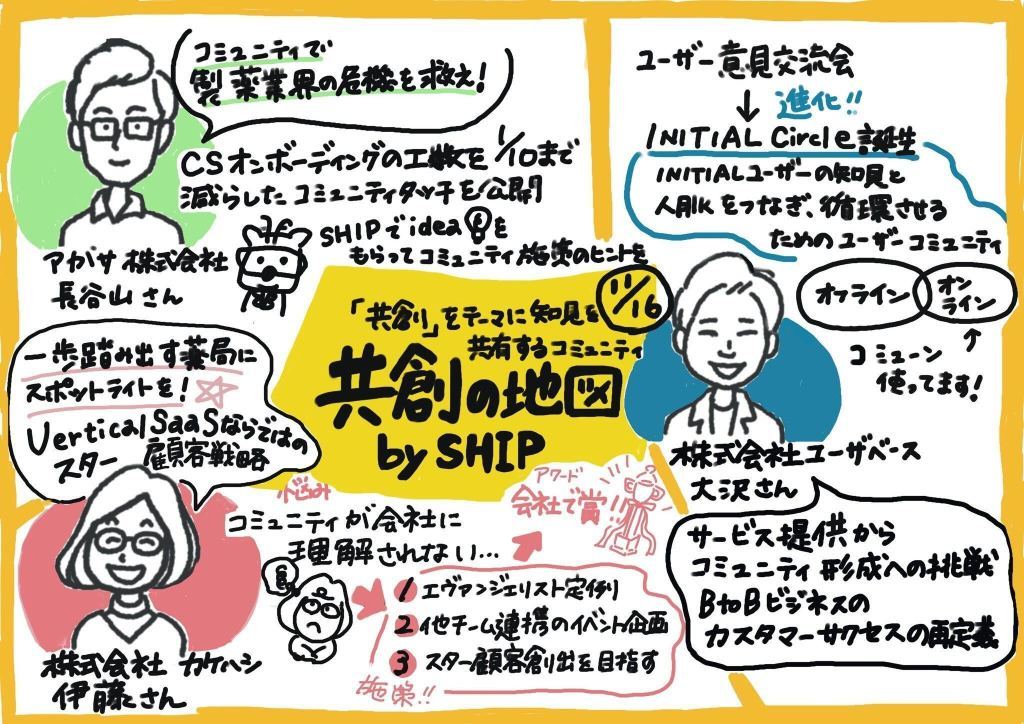 コミュニティで
製薬業界の危機を救え!
CSオンボーディングの工数を1/10まで
減らしたコミュニティタッチを公開
SHIPでideaを
もらってコミュニティ施策のヒントを
アガサ株式会社
長谷山さん
ユーザー意見交流会
↓進化!!
INITIAL Circle誕生
INITIALユーザーの知見と
人脈をつなぎ、循環させる
ためのユーザーコミュニティ
オフライン
オン
ライン
コミューン
使ってます!
11/16
「共創」をテーマに知見を
共有するコミュニティ
共創の地図
by SHIP
株式会社ユーザベース
大沢さん
サービス提供から
コミュニティ形成への挑戦
BtoBビジネスの
カスタマーサクセスの再定義
一歩踏み出す薬局に
スポットライトを!
Vertical SaaSならではの
スター顧客戦略
株式会社カケハシ
伊藤さん
悩み
コミュニティが会社に
理解されない...
アワード
会社で賞!!
1 エヴァンジェリスト定例
2 他チーム連携のイベント企画
3 スター顧客創出を目指す
施策!!